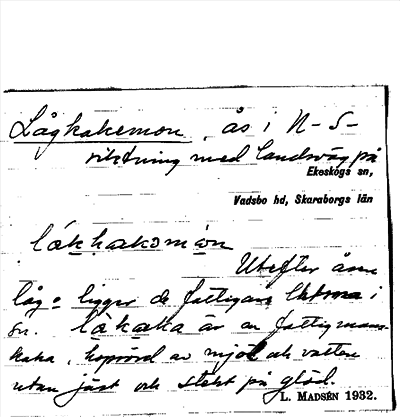 Lågkakemon, ås i N-S-
riktning med landsväg på
Ekeskogs sn,
Vadsbo hd, Skaraborgs län
Utefter åsen
låg o ligger de fattigare i
sn. låkaka är en fattigmans-
kaka, hoprörd av mjöl och vatten
utan jäst och stekt på glöd.
L. MADSÉN 1932.